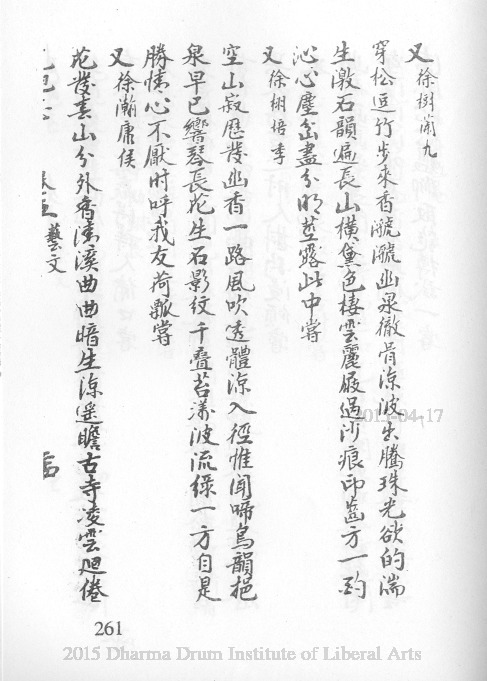 又 徐樹蘭九
穿松逗竹步來香虢虢幽泉徹骨涼波出騰珠光欲的湍
生激石韻遍長山橫黛色棲雲麗屐過沙痕印齒方一酌
沁心塵盡分明莖露此中嘗
又 徐樹培季
空山寂歷發幽香一路風吹透體涼入徑惟聞啼鳥韻挹
泉早已響琴長花生石影紋千疊苔漾波流綠一方自是
勝情心不厭时呼我友荷瓢嘗
又 徐瀚庸侯
花發春山分外香清溪曲曲暗生涼遥瞻古寺凌雲迥倦
藝文
261
2015-04-17
2015 Dharma Drum Institute of Liberal Arts